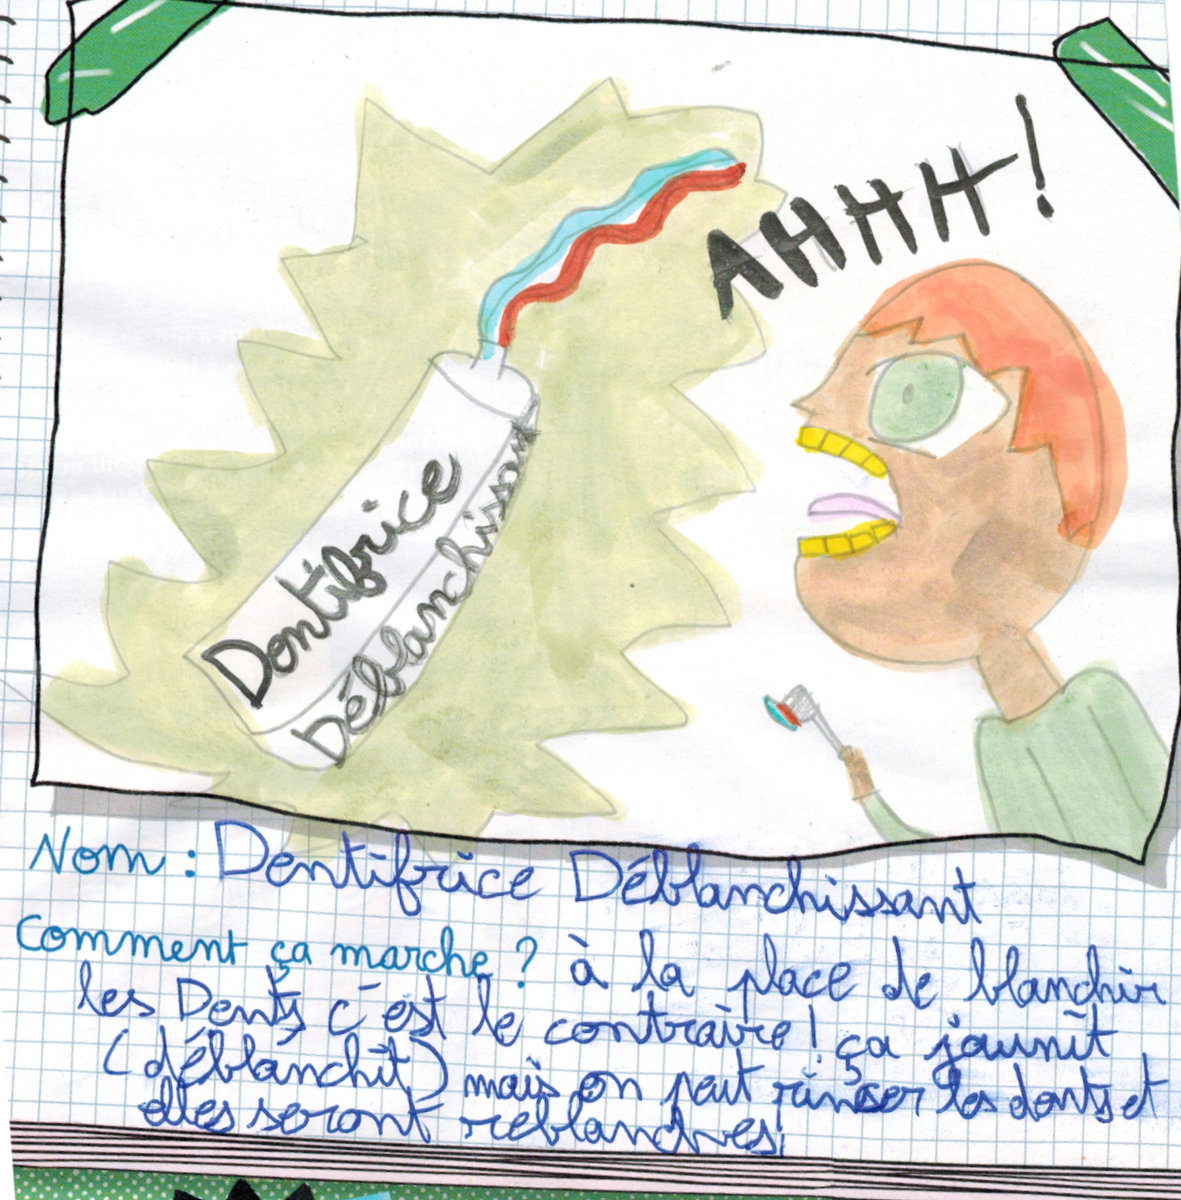 AHHH!
Dontifrice
Déblanchissant
Nom : Dentifrice Déblanchissant
Comment ça marche ? à la place de blanchir
les Dents c'est le contraire! ça jaunit
(déblanchit) mais on peut rinser les dents et
elles seront reblanches!